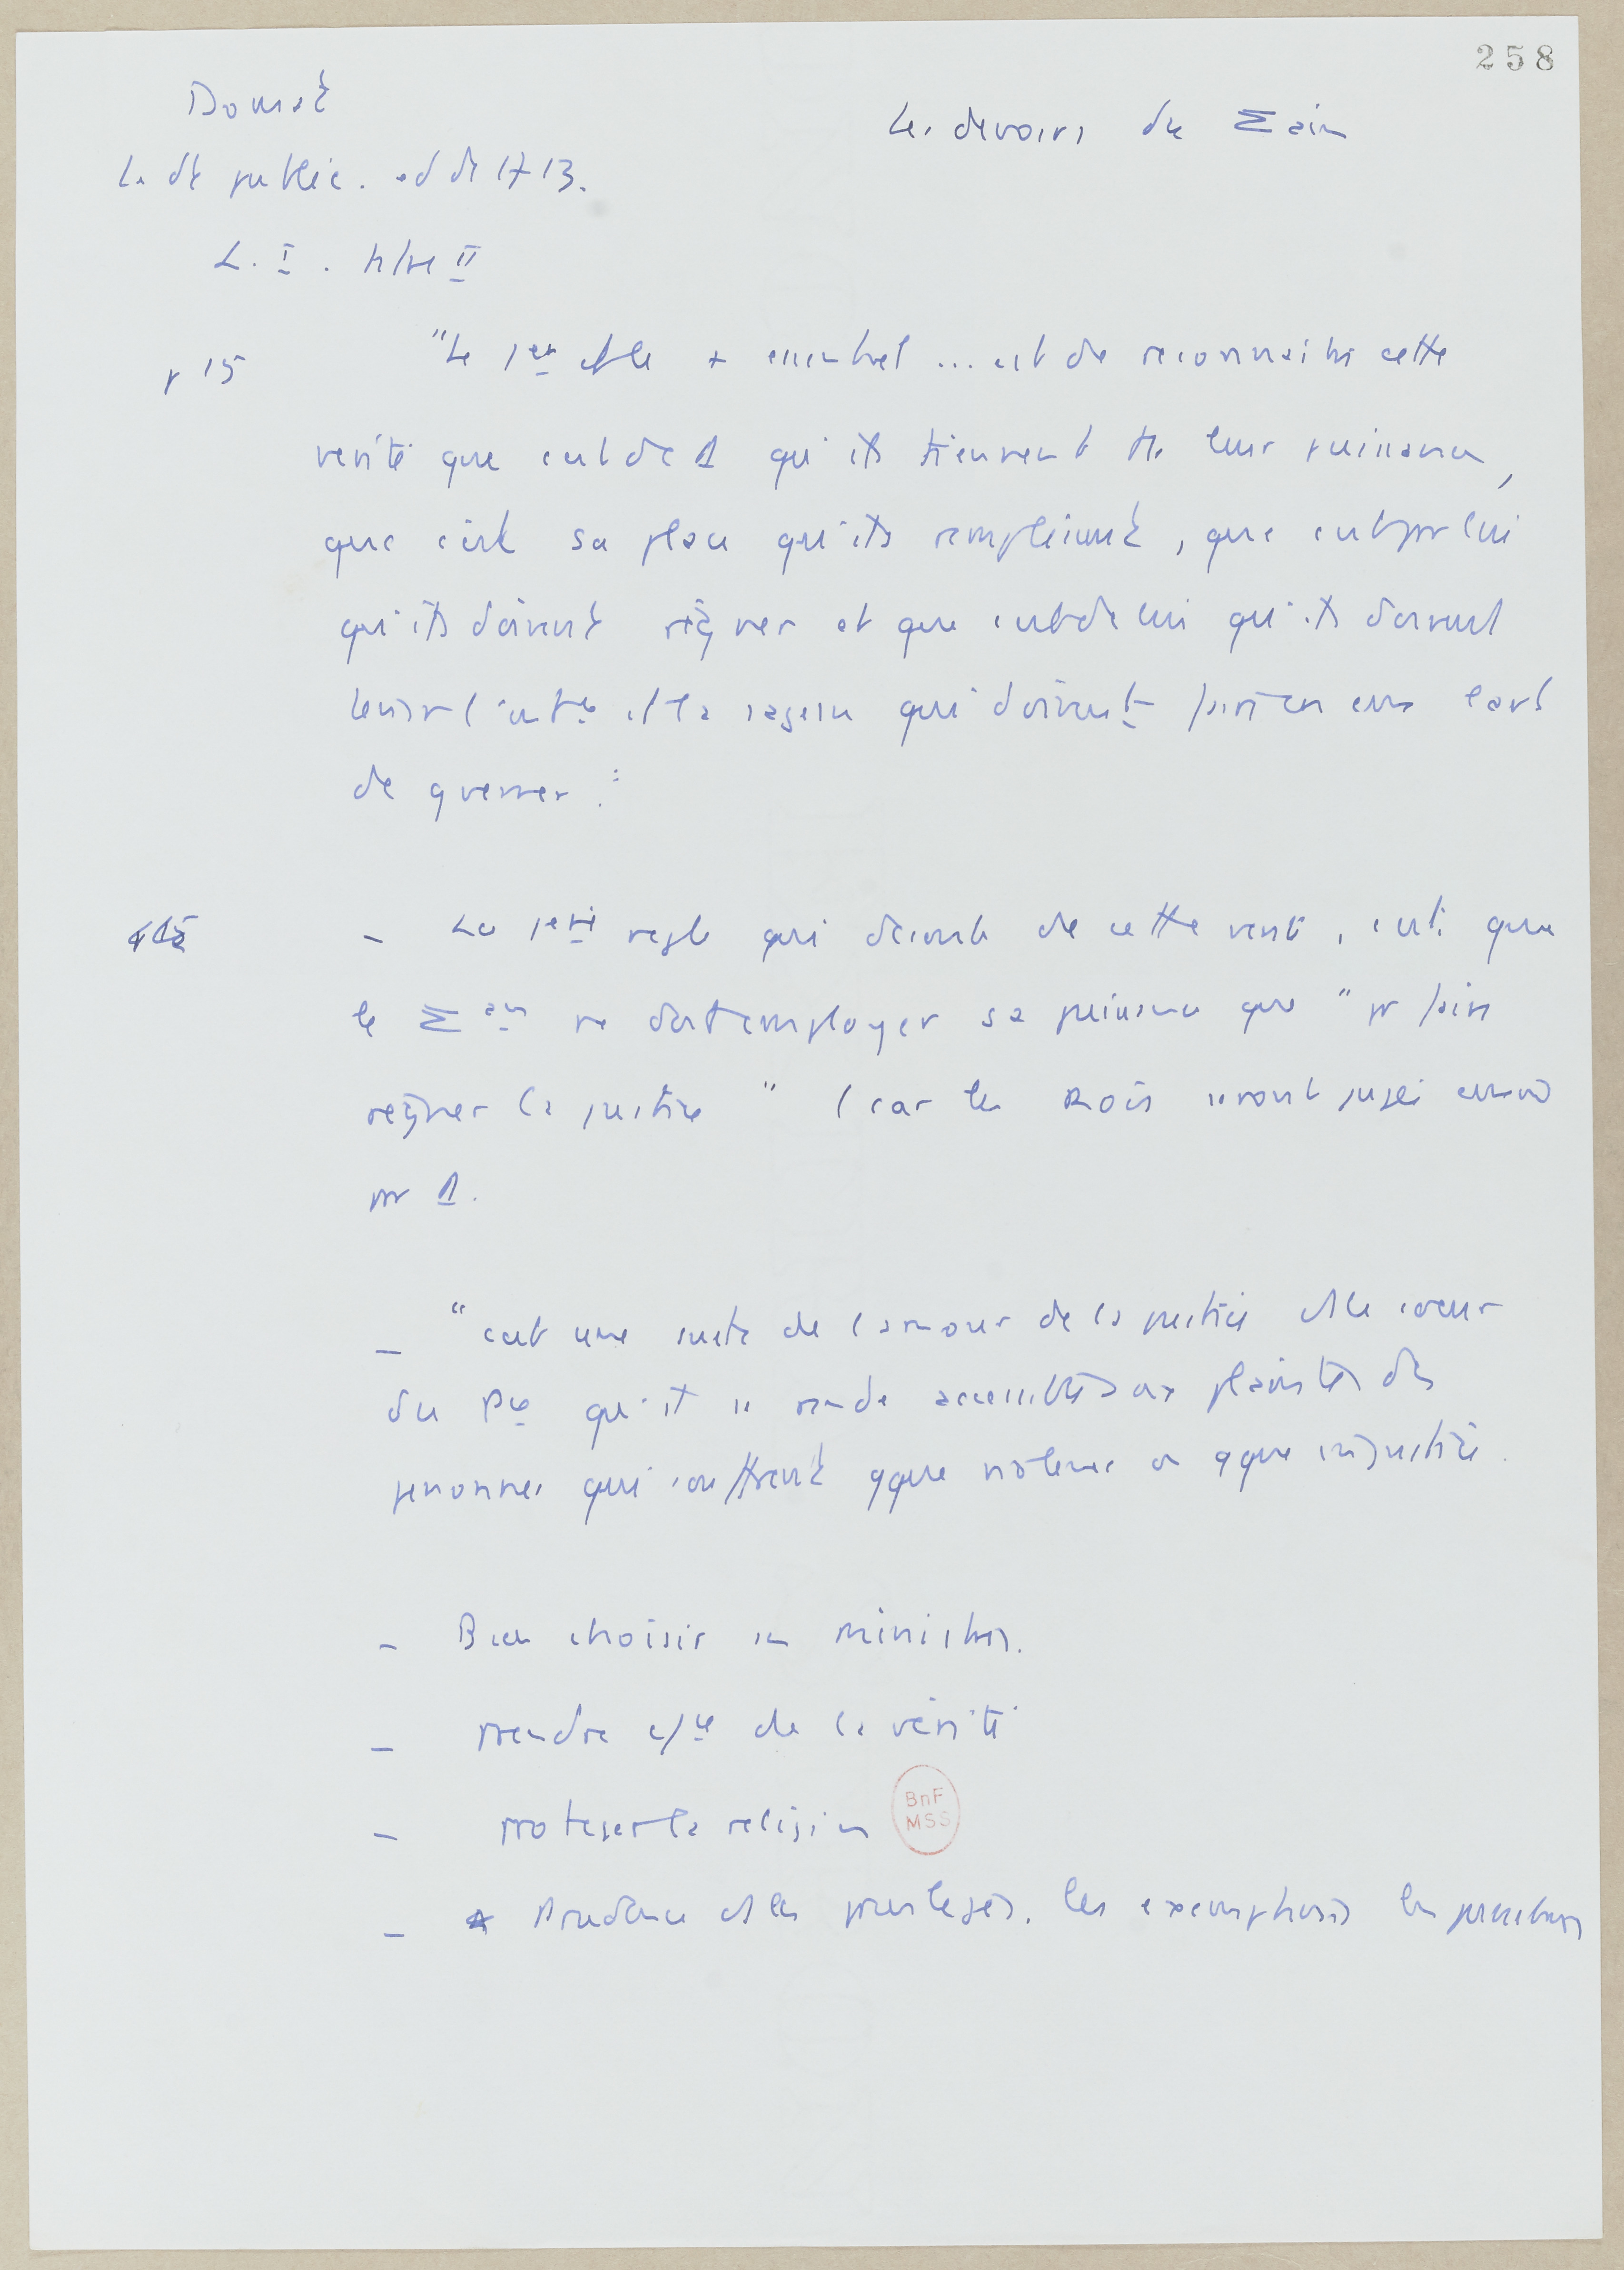 258
Domat
Les devoirs du Σain
Le dt public. ed de 1713.
L. I. titre II
p 15 "Le 1er et le + essentiel ... est de reconnaitre cette
vérité que c'est de Δ qu'ils tiennent tte leur puissance,
que c'est sa place qu'ils remplissent, que c'est par lui
qu'ils doivent régner et que c'est de lui qu'ils doivent
et la sagesse qui doivent faire en eux l'art
de gverner."
- La 1ère règle qui découle de cette vérité, c'est que
le Σain ne doit employer sa puissance que "pr faire
régner la justice" (car les Rois seront jugés
par Δ.
- "c'est une suite de l'amour de la justice ds le coeur
du Pce qu'il se rende accessible aux plaintes des
personnes qui souffrent qque violence ou qque injustice.
- Bien choisir ses ministres.
- prendre de la vérité
- proteger la religion
BnF
MSS
- Prudence ds les privileges, les exemptions, les